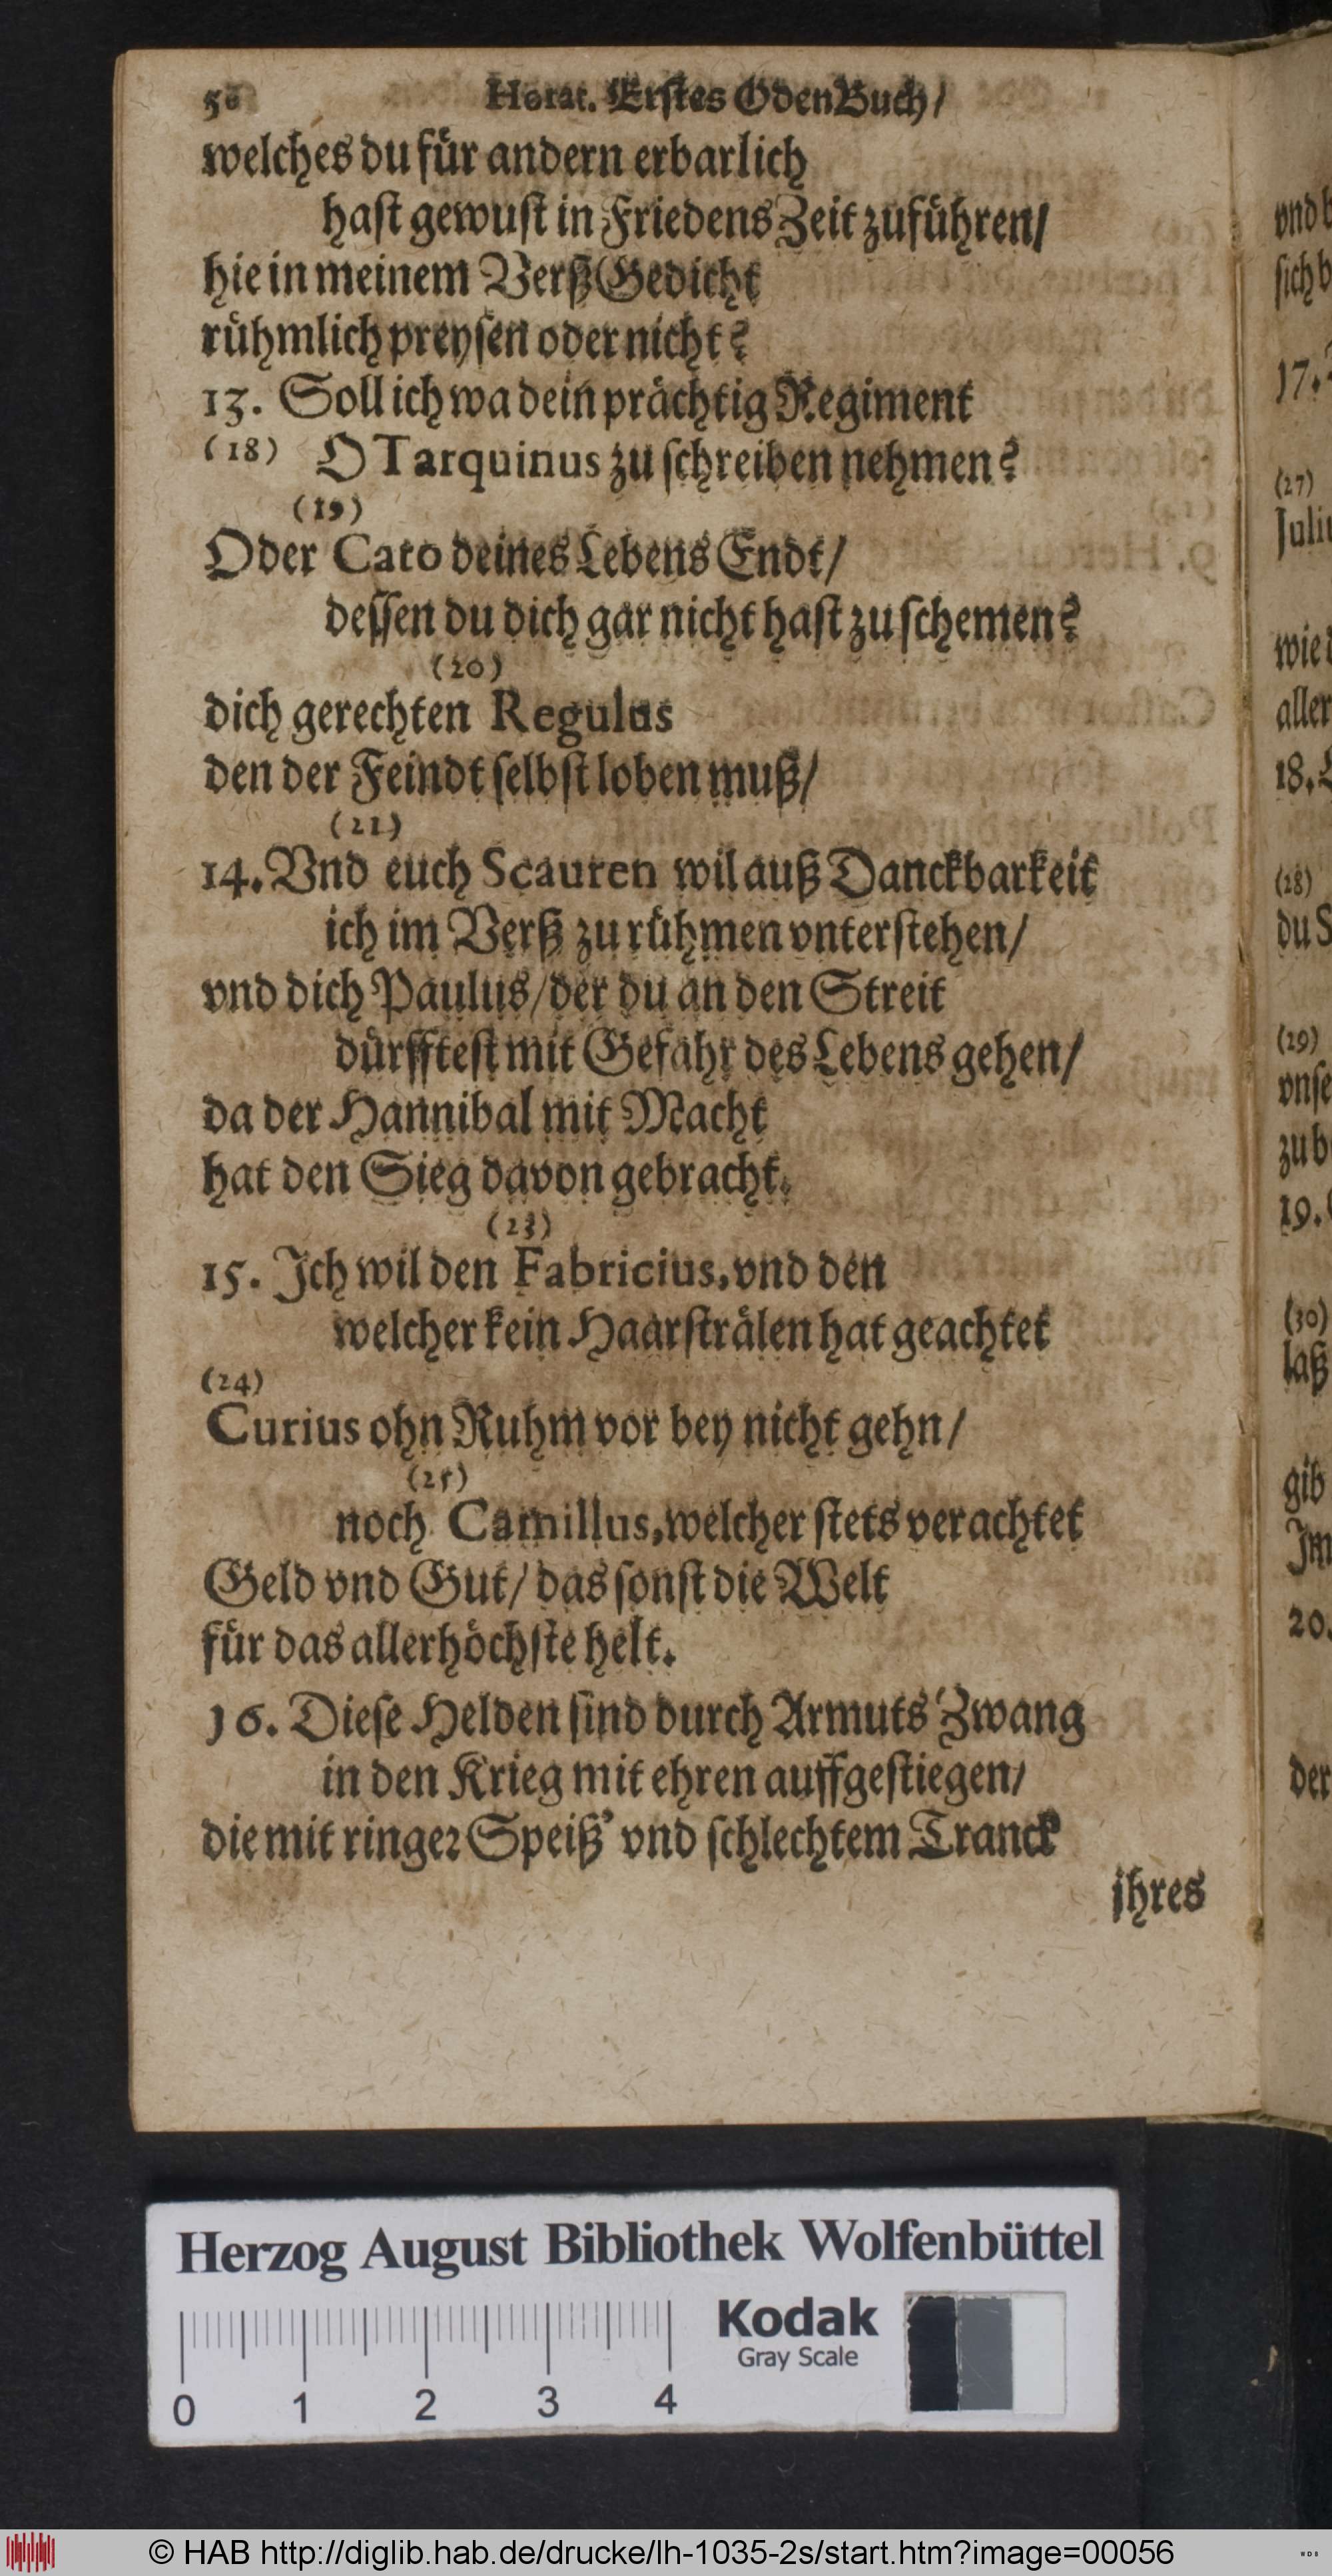 50 Horat. Erstes OdenBuch/
welches du für andern erbarlich
hast gewust in Friedens Zeit zuführen/
hie in meinem Verß Gedicht
rühmlich preysen oder nicht?
13. Soll ich wa dein prächtig Regiment
(18) O Tarquinus zu schreiben nehmen?
(19)
Oder Cato deines Lebens Endt/
dessen du dich gar nicht hast zu schemen?
(20)
dich gerechten Regulus
den der Feindt selbst loben muß/
(21)
14. Vnd euch Scauren wil auß Danckbarkeit
ich im Verß zu rühmen vnterstehen/
vnd dich Paulus/ der du an den Streit
dürfftest mit Gefahr des Lebens gehen/
da der Hannibal mit Macht
hat den Sieg davon gebracht.
(23)
15. Ich wil den Fabricius, vnd den
welcher kein Haarsträlen hat geachtet
(24)
Curius ohn Ruhm vor bey nicht gehn/
(25)
noch Camillus, welcher stets verachtet
Geld vnd Gut/ das sonst die Welt
für das allerhöchste helt.
16. Diese Helden sind durch Armuts Zwang
in den Krieg mit ehren auffgestiegen/
die mit ringer Speiß' vnd schlechtem Tranck
ihres
17.
(27)
wie
aller
18.
(28)
du
(29)
19.
(30)
laß
gib
20.
der
Herzog August Bibliothek Wolfenbüttel
Kodak
Gray Scale
0 1 2 3 4
© HAB http://diglib.hab.de/drucke/lh-1035-2s/start.htm?image=00056